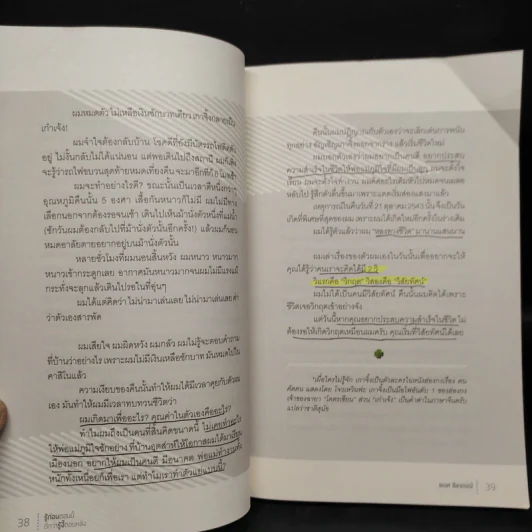 ผมหมดตัว ไม่เหลือเงินซักบาทเดียว เกาจิ้งกลายเป็น
เก๋าเจ้ง!
ผมจำใจต้องกลับบ้าน โชคดีที่ยังมีบัตรรถไฟติดตัว
อยู่ ไม่งั้นกลับไม่ได้แน่นอน แต่พอเดินไปถึงสถานี ผมก็เพิ่ง
จะรู้ว่ารถไฟขบวนสุดท้ายหมดเที่ยงคืน จะมาอีกทีก็
ผมจะทำอย่างไรดี? ขณะนั้นเป็นเวลาตีหนึ่งกว่าๆ
อุณหภูมิคืนนั้น 5 องศา เสื้อกันหนาวก็ไม่มี ผมไม่มีทาง
เลือกนอกจากต้องรอจนเช้า เดินไปเห็นม้านั่งตัวหนึ่งที่แม่น้ำ
(ซักวันผมต้องกลับไปที่ม้านั่งตัวนั้นอีกครั้ง!) แล้วผมก็นอน
หมดอาลัยตายอยากอยู่บนม้านั่งตัวนั้น
หลายชั่วโมงที่ผมนอนสิ้นหวัง ผมหนาว หนาวมาก
หนาวเข้ากระดูกเลย อากาศมันหนาวมากจนผมไม่มีแรงแม้
กระทั่งจะลุกแล้วเดินไปรอในที่อุ่นๆ
ผมได้แต่คิดว่า ไม่น่ามาเล่นเลย ไม่น่ามาเล่นเลย ด่า
ว่าตัวเองสารพัด
ผมเสียใจ ผมผิดหวัง ผมกลัว ผมไม่รู้จะตอบคำถาม
ที่บ้านว่าอย่างไร เพราะผมไม่มีเงินเหลือซักบาท มันหมดไปใน
คาสิโนแล้ว
ความเงียบของคืนนั้นทำให้ผมได้มีเวลาคุยกับตัวผม
เอง มันทำให้ผมได้มีเวลาทบทวนชีวิตว่า
ผมเกิดมาเพื่ออะไร? คุณค่าในตัวเองคืออะไร?
ทำไมผมถึงเป็นคนที่สิ้นคิดขนาดนี้ ไม่เคยทำอะไร
ให้พ่อแม่ภูมิใจซักอย่าง ที่บ้านอุตส่าห์ให้โอกาสผมได้มาเรียน
เมืองนอก อยากให้ผมเป็นคนดี มีอนาคต พ่อแม่ทำงาน
หนักทั้งเหนื่อยก็เพื่อเรา แต่ทำไมเราทำตัวแย่แบบนี้?
38
รู้ก่อน
รู้งี้
คืนนั้นผมปฏิญาณกับตัวเองว่าจะเลิกเล่นการพนัน
ทุกอย่าง แล้วเริ่มชีวิตใหม่
ผมบอกตัวเองว่าผมอยากเป็นคนดี อยากประสบ
ความสำเร็จในชีวิตให้พ่อแม่ภูมิใจที่มีผมเป็นลูก ผมจะตั้งใจ
เหตุการณ์ในคืนวันที่ 21 ตุลาคม 2543 นั้นจึงเป็นวัน
เกิดที่พิเศษที่สุดของผม เพราะผมได้เกิดใหม่อีกครั้งในร่างเดิม
ผมได้รู้ตัวแล้วว่าผม "หลงทางชีวิต" มานานแสนนาน
ผมเล่าเรื่องของตัวผมเองในวันนั้นเพื่ออยากจะให้
คุณได้รู้ว่าคนเราจะคิดได้มี 2 วิ
วิแรกคือ "วิกฤต" วิสองคือ "วิสัยทัศน์"
ผมไม่ได้เป็นคนมีวิสัยทัศน์ คืนนั้นผมคิดได้เพราะ
ชีวิตเจอวิกฤตอย่างรุนแรง
แต่วันนี้หากคุณอยากประสบความสำเร็จในชีวิต ไม่
ต้องรอให้เกิดวิกฤตเหมือนผมครับ คุณเริ่มที่วิสัยทัศน์ได้เลย
39